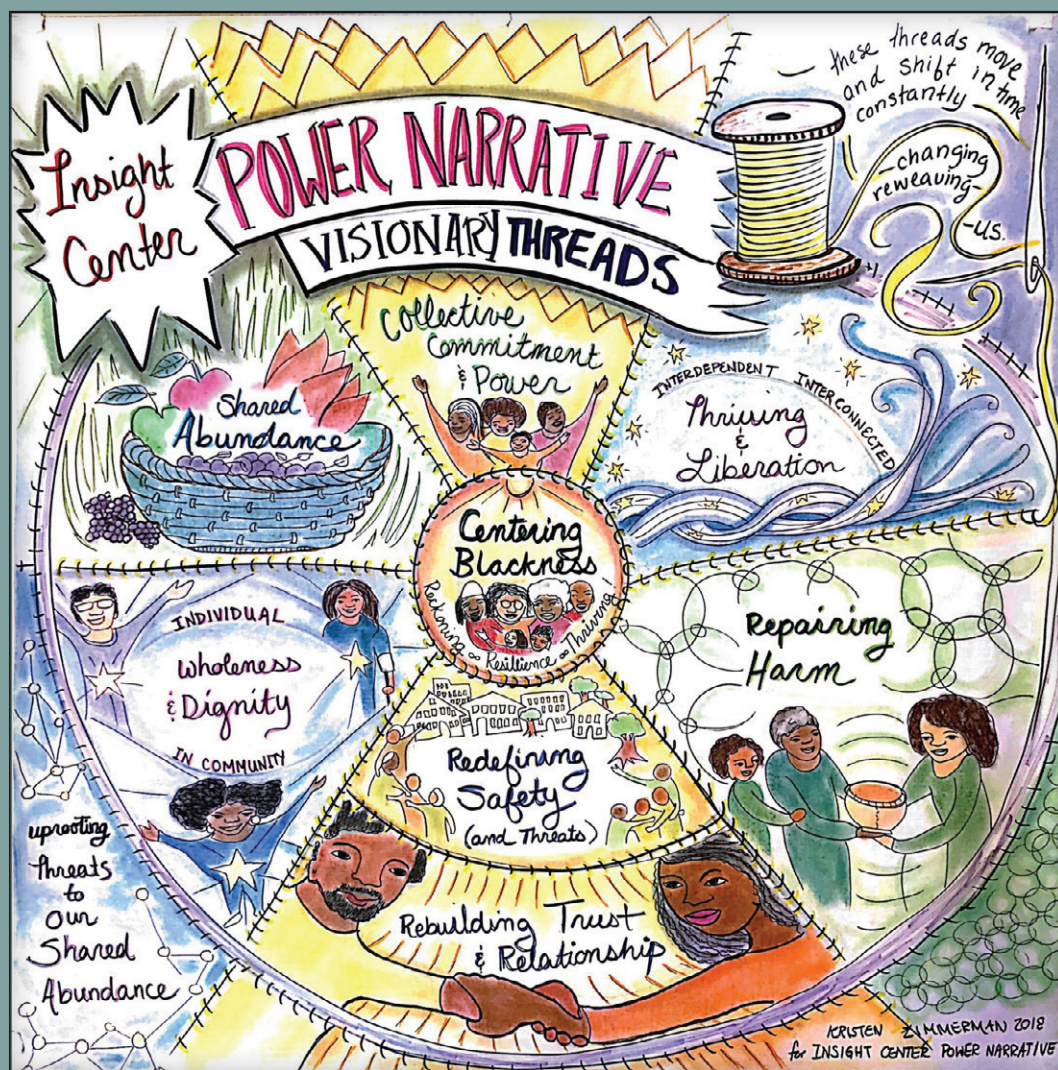 Insight
Center
POWER NARRATIVE
VISIONARY THREADS
these threads move
and shift in time
constantly
-changing
reweaving-
-us.
Collective
Commitment
& Power
Shared
Abundance
INTERDEPENDENT INTERCONNECTED
Thriving
&
Liberation
Centering
Blackness
Reckoning ∞ Resilience ∞ Thriving
INDIVIDUAL
Wholeness
& Dignity
IN COMMUNITY
Repairing
Harm
Redefining
Safety
(and Threats)
uprooting
threats
to
our
Shared
Abundance
Rebuilding Trust
& Relationship
KRISTEN ZIMMERMAN 2018
for INSIGHT CENTER POWER NARRATIVE